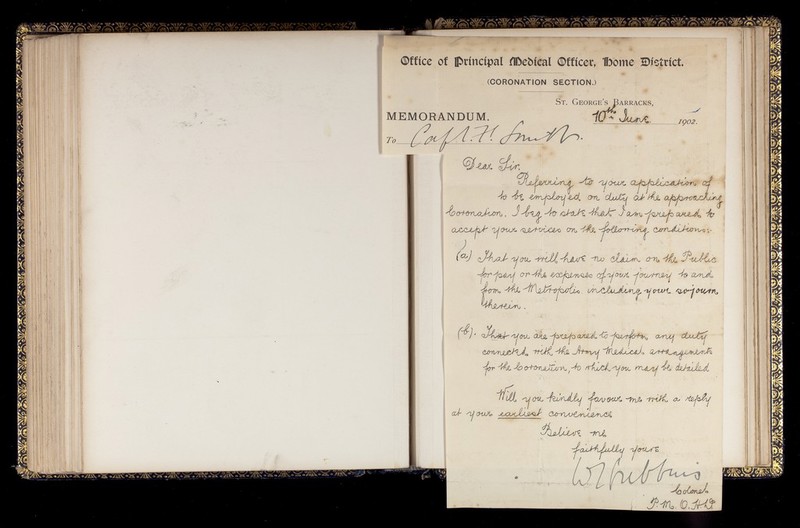 Office of Principal Medical Officer, Home District.
(CORONATION SECTION.)
St. George's Barracks,
MEMORANDUM.
10th June 1902.
To Capt. H. Smith.
Dear Sir,
Referring to your application of
to be employed on duty at the approaching
Coronation. I beg to state that I am prepared to
accept your services on the following conditions:-
(a) That you will have no claim on the Public
for pay or the expenses of your journey to and
from the Metropolis including your sojourn
therein.
(b). That you are prepared to perform any duty
connected with the Army Medical arrangements
for the Coronation, to which you may be detailed
Will you kindly favour me with a reply
at your earliest convenience
Believe me
faithfully yours
Colonel
P. M. O. H. D.